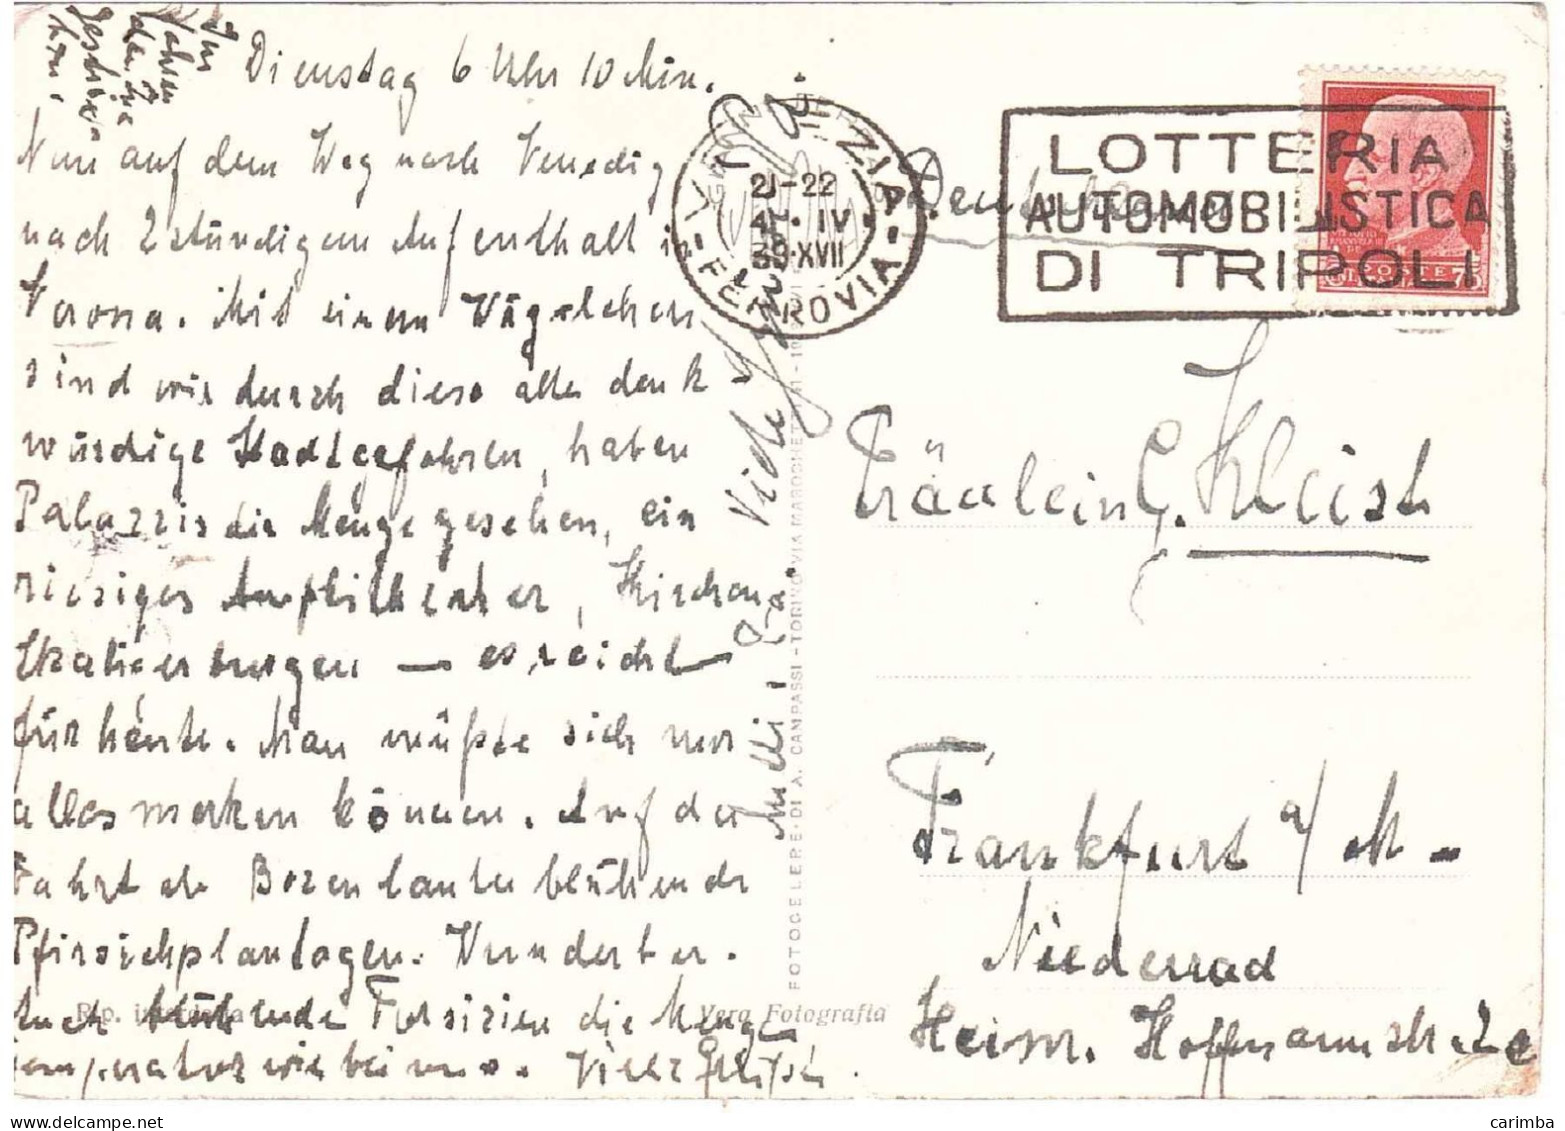 Dienstag 6 Uhr 10 Min.
Nun auf dem Weg nach Venedig
nach 2stündigem Aufenthalt in
Verona. Mit einem Wägelchen
sind wir durch diese alte denk
würdige Stadt gefahren, haben
Palazzis die Menge gesehen, ein
riesiges Amphitheater, Kirchen,
Skaligerburgen — es reicht
für heute. Man müßte sich nur
alles merken können. Auf der
Fahrt ab Bozen lauter blühende
Pfirsichplantagen. Wunderbar.
Auch blühende Forsizien die Menge
Temperatur wie bei uns. Viele Grüße
Viele
VENEZIA
FERROVIA
21-22
4 · IV
39·XVII
LOTTERIA
AUTOMOBILISTICA
DI TRIPOLI
POSTE
CENT 75
Deutschland
Fräulein G. Kleist
Frankfurt a/M-
Niederrad
Heinr. Hoffmannstr. 2c
FOTOCELERE·DI A. CAMPASSI - TORINO VIA MAROCHETTI
Rip. interdetta
Vera Fotografia
carimba